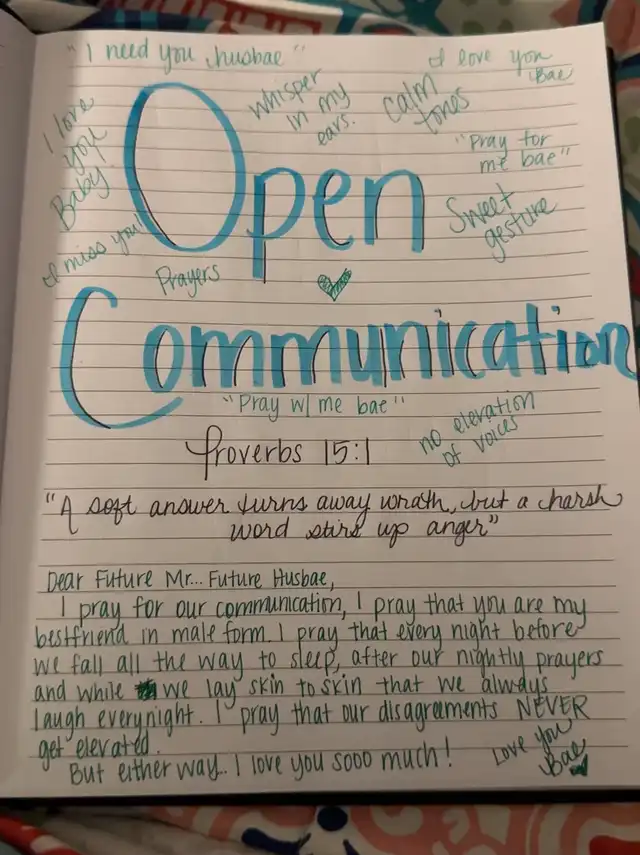 "I need you husbae"
I love you
Bae
I love
you
Baby
whisper
in my
ears.
calm
tones
"Pray for
me bae"
Open
Sweet
gesture
I miss you!
Prayers
Communication
"Pray w/ me bae"
no elevation
of voices
Proverbs 15:1
"A soft answer turns away wrath, but a charsh
word stirs up anger"
Dear Future Mr... Future Husbae,
I pray for our communication, I pray that you are my
bestfriend in male form. I pray that every night before
we fall all the way to sleep, after our nightly prayers
and while we lay skin to skin that we always
laugh everynight. I pray that our disagreements NEVER
get elevated.
But either way.. I love you sooo much!
Love you
Bae